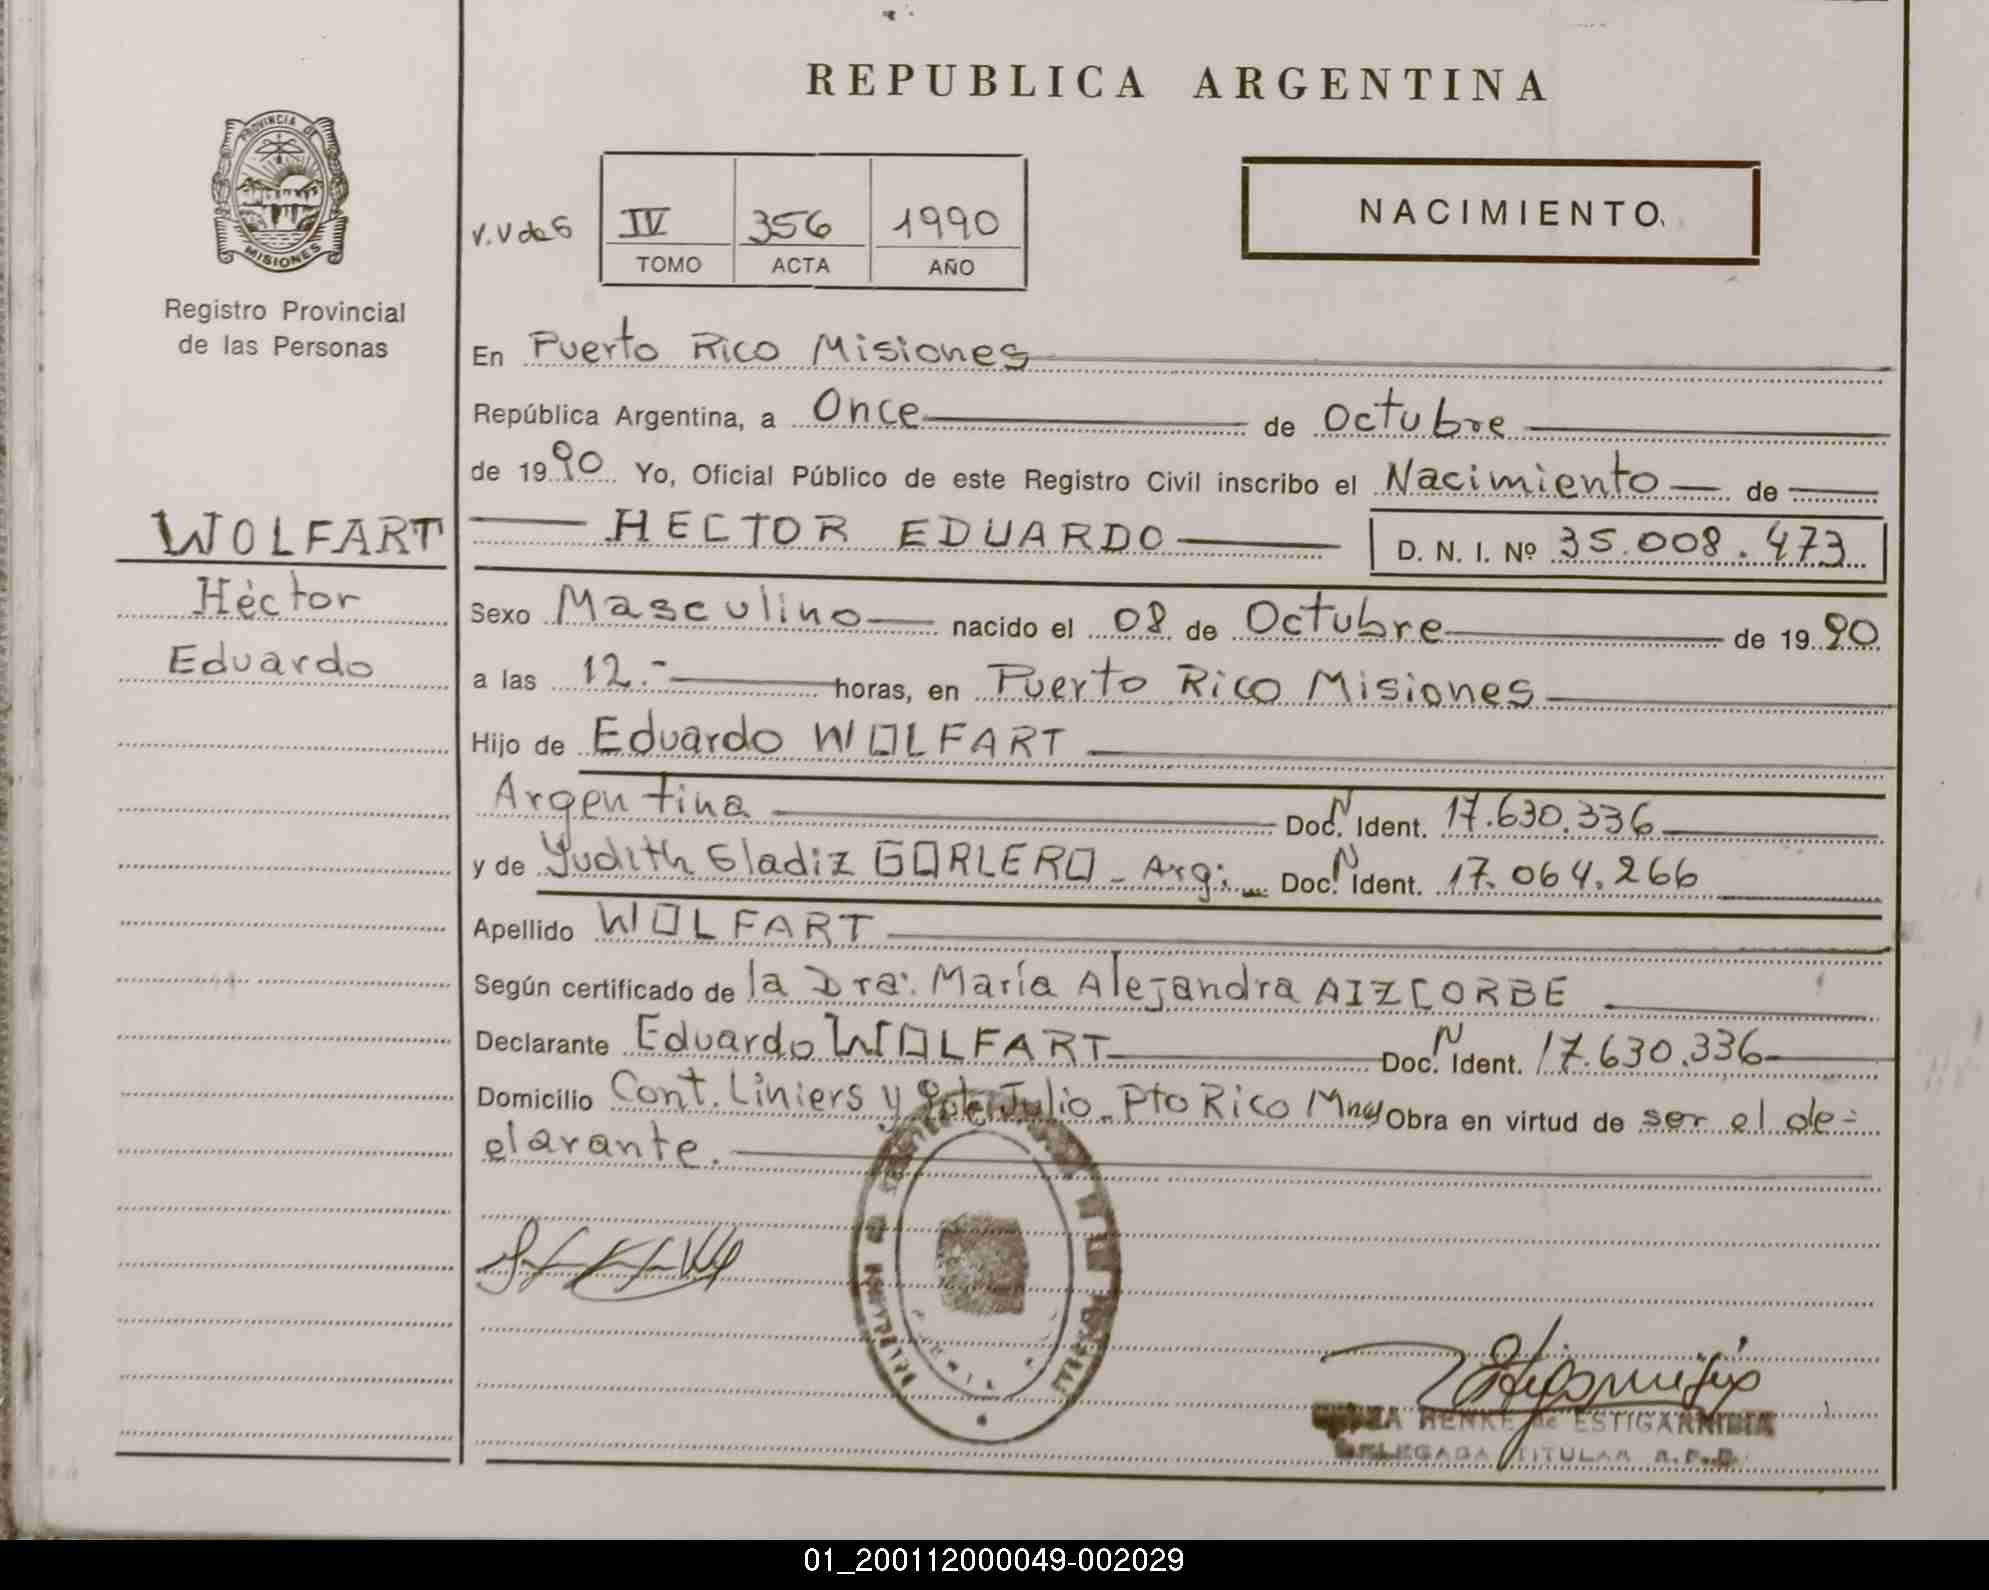 REPUBLICA ARGENTINA
PROVINCIA DE
MISIONES
Registro Provincial
de las Personas
IV 356 1990
TOMO ACTA AÑO
NACIMIENTO
En Puerto Rico Misiones
República Argentina, a Once de Octubre
de 1990 Yo, Oficial Público de este Registro Civil inscribo el Nacimiento de
WOLFART
Héctor
Eduardo
HECTOR EDUARDO D. N. I. Nº 35.008.473
Sexo Masculino nacido el 08 de Octubre de 1990
a las 12.- horas, en Puerto Rico Misiones
Hijo de Eduardo WOLFART
Argentina Doc. N Ident. 17.630.336
y de Yudith Gladiz GORLERO - Arg. Doc. N Ident. 17.064.266
Apellido WOLFART
Según certificado de la Dra. María Alejandra AIZCORBE
Declarante Eduardo WOLFART Doc. N Ident. 17.630.336
Domicilio Cont. Liniers y Julio - Pto Rico Mnes Obra en virtud de ser el de-
clarante.
RENKE de ESTIGARRIBIA
DELEGADA TITULAR R.P.P.
01_200112000049-002029